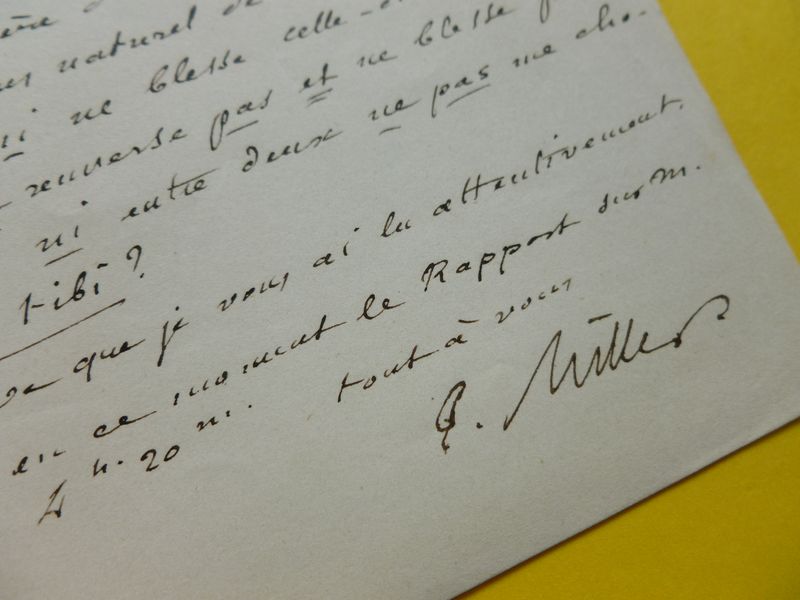 naturel de
ne blesse celle-
renverse pas et ne blesse
ni entre deux ne pas me cho-
tibi?
que je vous ai lu attentivement.
en ce moment le Rapport sur M.
4 h. 20 m. tout à vous
E. Miller